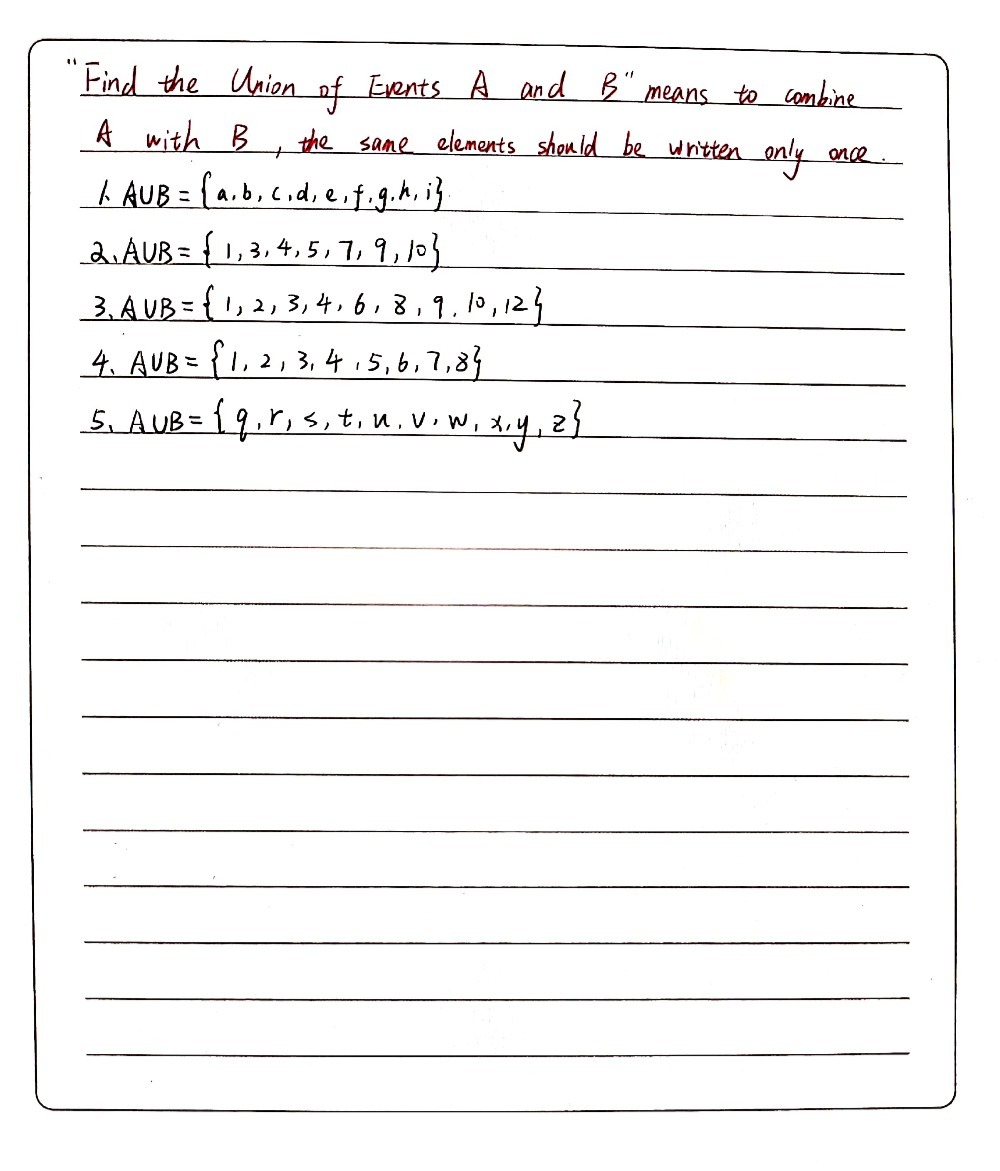 "Find the Union of Events A and B" means to combine
A with B, the same elements should be written only once.
1. A∪B = {a.b, c.d, e, f, g.h, i}
2. A∪B = { 1, 3, 4, 5, 7, 9, 10}
3. A∪B = { 1, 2, 3, 4, 6, 8, 9, 10, 12}
4. A∪B = { 1, 2, 3, 4, 5, 6, 7, 8}
5. A∪B = { q, r, s, t, u, v, w, x, y, z}